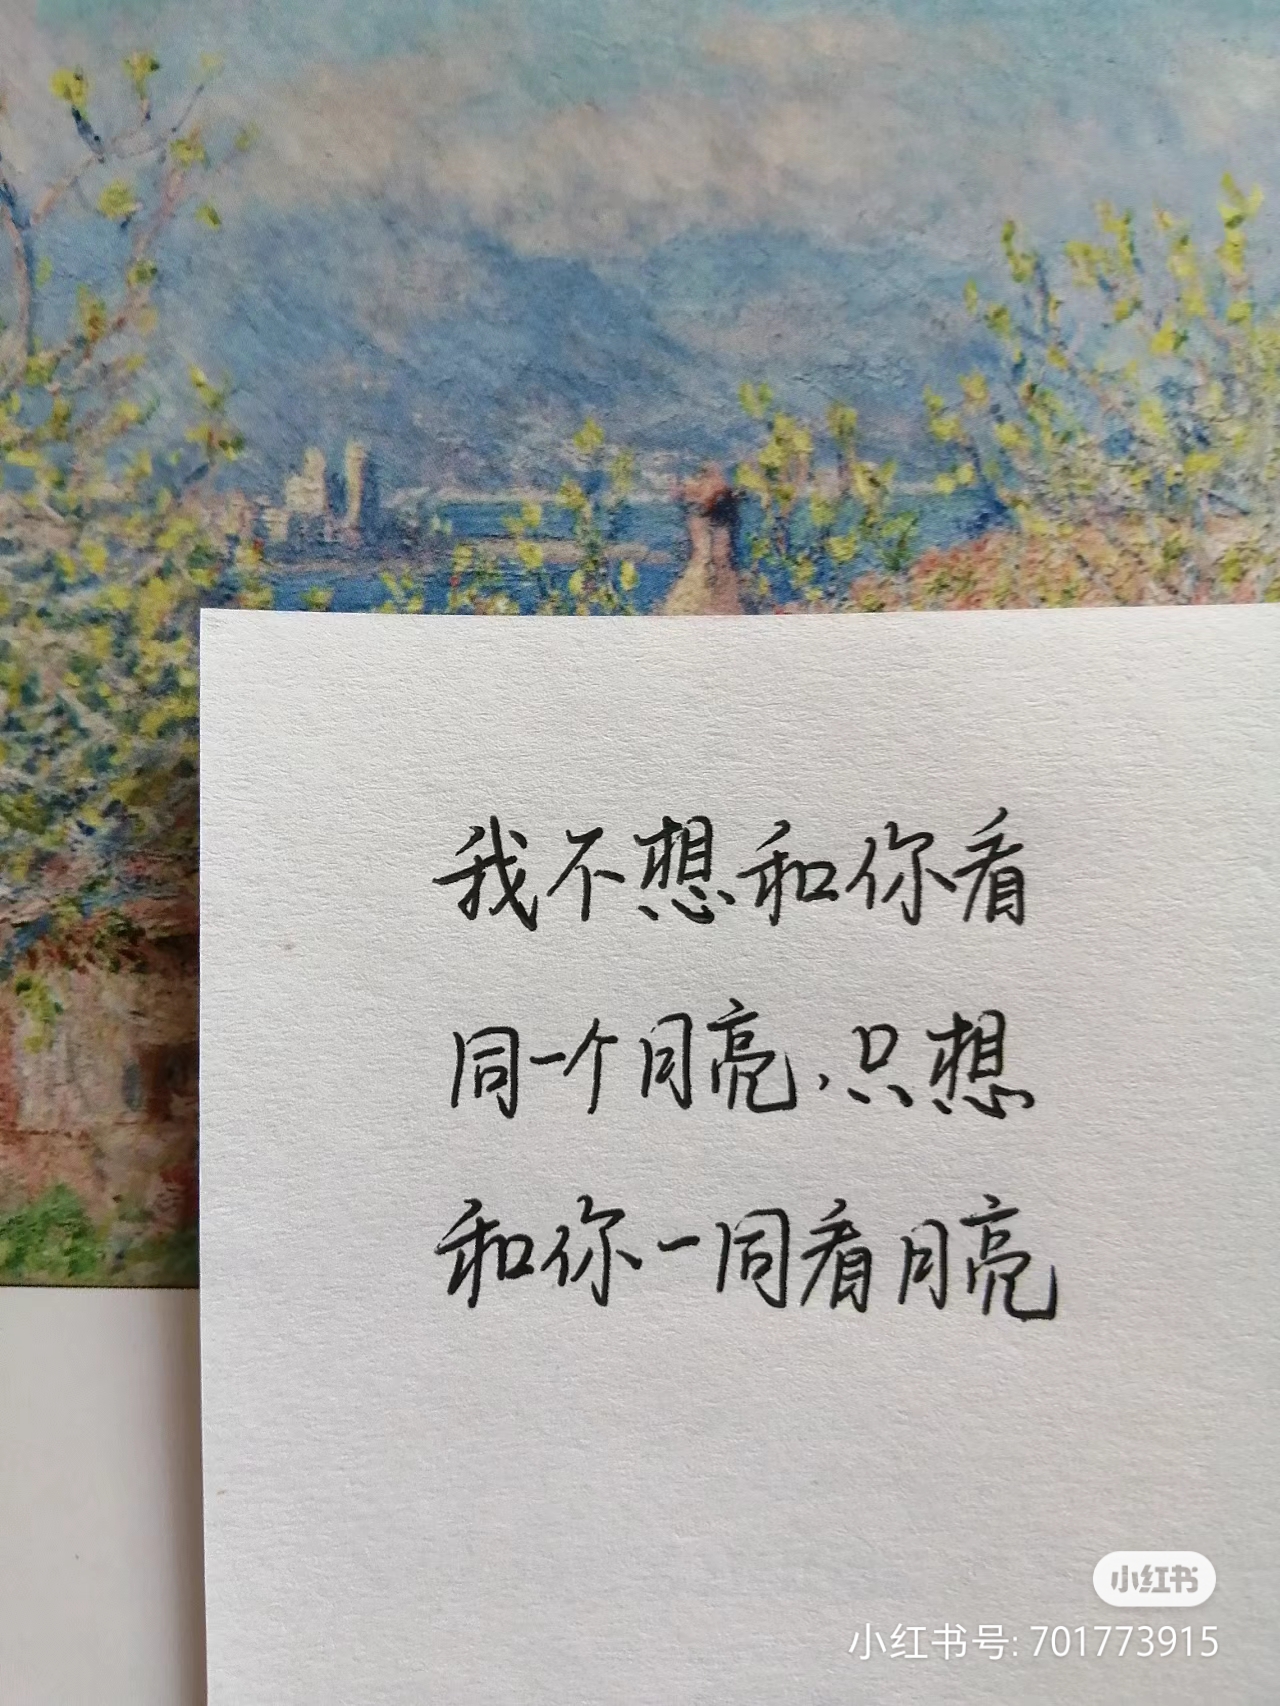 我不想和你看
同一个月亮,只想
和你一同看月亮
小红书
小红书号: 701773915